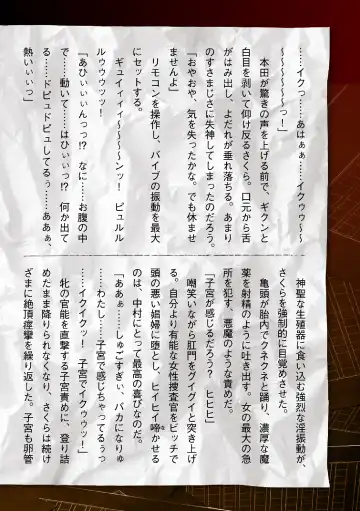 ……イクっ……あはぁぁ……イクゥゥ〜〜
〜〜〜〜〜〜っ！」
　本田が驚きの声を上げる前で、ギクンと
白目を剥いて仰け反るさくら。口元から舌
がはみ出し、よだれが垂れ落ちる。あまり
のすさまじさに失神してしまったのだろう。
「おやおや、気を失ったかな。でも休ませ
ませんよ」
　リモコンを操作し、バイブの振動を最大
にセットする。
　ギュイィィ〜〜〜〜ンッ！　ピュルル
ルゥゥウッッ！
「あひぃぃぃんっっ!?　なに……お腹の中
で……動いて……はひぃぃっ!?　何か出て
る……ドピュドピュしてるぅ……ああぁ、
熱いぃぃっ」
　神聖な生殖器に食い込む強烈な淫振動が、
さくらを強制的に目覚めさせた。
　亀頭が胎内でクネクネと踊り、濃厚な魔
薬を射精のように吐き出す。女の最大の急
所を犯す、悪魔のような責めだ。
「子宮が感じるだろう？　ヒヒヒ」
　嘲笑いながら肛門をグイグイと突き上げ
る。自分より有能な女性捜査官をビッチで
頭の悪い娼婦に堕とし、ヒイヒイ啼かせる
のは、中村にとって最高の喜びなのだ。
「ああぁ……しゅごすぎぃ、バカになりゅ
……わたし……子宮で感じちゃってるぅっ
……イクイクッ！　子宮でイクゥウッ！」
　牝の官能を直撃する子宮責めに、登り詰
めたまま降りられなくなり、さくらは続け
ざまに絶頂痙攣を繰り返した。子宮も卵管